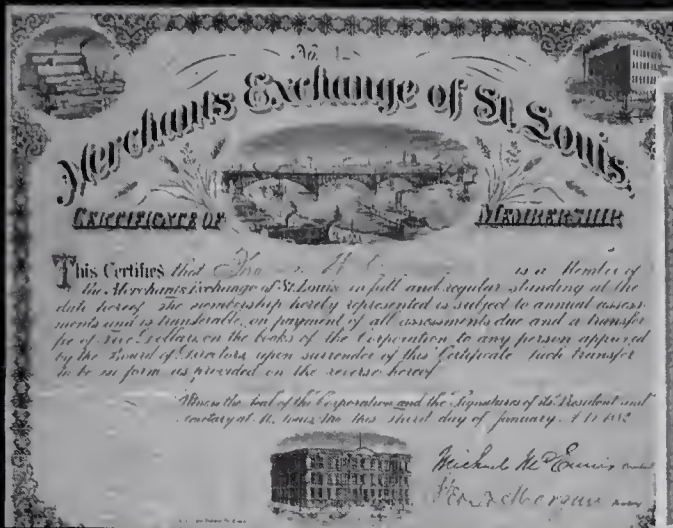 No. 1
Merchants Exchange of St. Louis.
CERTIFICATE OF MEMBERSHIP
This Certifies that is a Member of
the Merchants Exchange of St. Louis in full and regular standing at the
date hereof. The membership hereby represented is subject to annual assess-
ments and is transferable, on payment of all assessments due and a transfer
fee of Five Dollars, on the books of the Corporation to any person approved
by the Board of Directors, upon surrender of this Certificate. Such transfer
to be in form as provided on the reverse hereof.
Witness the Seal of the Corporation and the Signatures of its President and
Secretary at St. Louis Mo. this third day of January, A.D. 1882
Michael McEnnis President
Geo. H. Morgan Secretary